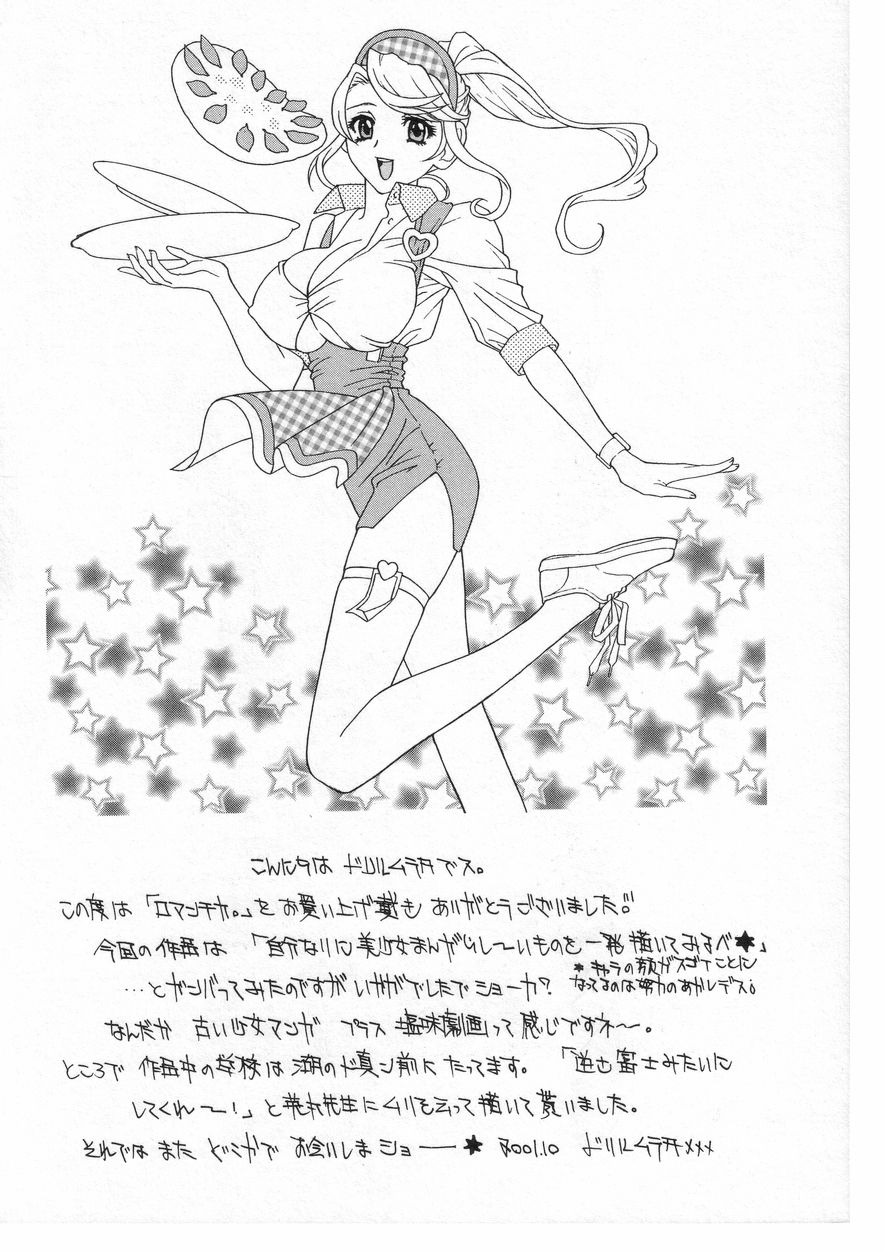 こんにちは ドリルムラタでス。
この度は「ロマンチカ。」をお買い上げ戴き ありがとうございました!!
今回の作品は 「自分なりに美少女まんがらし〜いものを一発描いてみるべ★」
*キャラの顔がスゴイことに
なってるのは努力のあかしデス。
…とガンバってみたのですが いかがでしたでショーカ?
なんだか 古い少女マンガ プラス 塩味劇画って感じですネ〜。
ところで 作品中の学校は 湖のド真ン前にたってます。「逆さ富士みたいに
してくれ〜!」と荒木先生にムリを云って描いて貰いました。
それでは また どこかで お会いしまショー★ 2001.10 ドリルムラタ×××